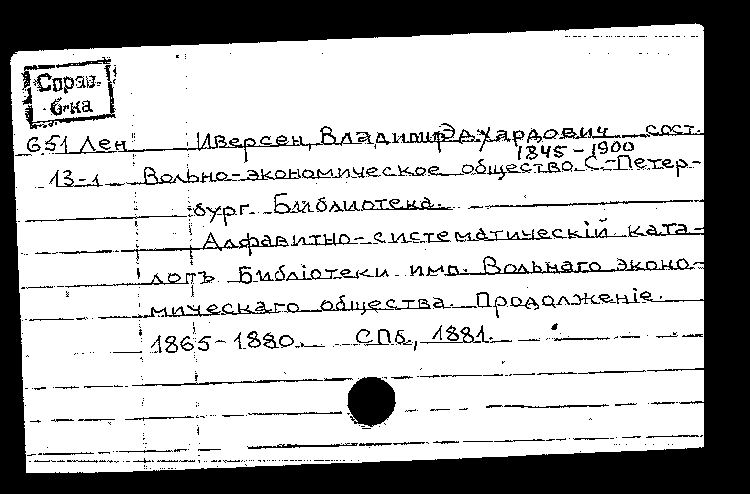 Справ.
б-ка
G51 Лен Иверсен, Владимир Эдуардович сост.
1845-1900
13-1 Вольно-экономическое общество. С.-Петер-
бург. Библиотека.
Алфавитно-систематическій ката-
логъ Библіотеки имп. Вольнаго эконо-
мическаго общества. Продолженіе.
1865-1880. СПб., 1881.